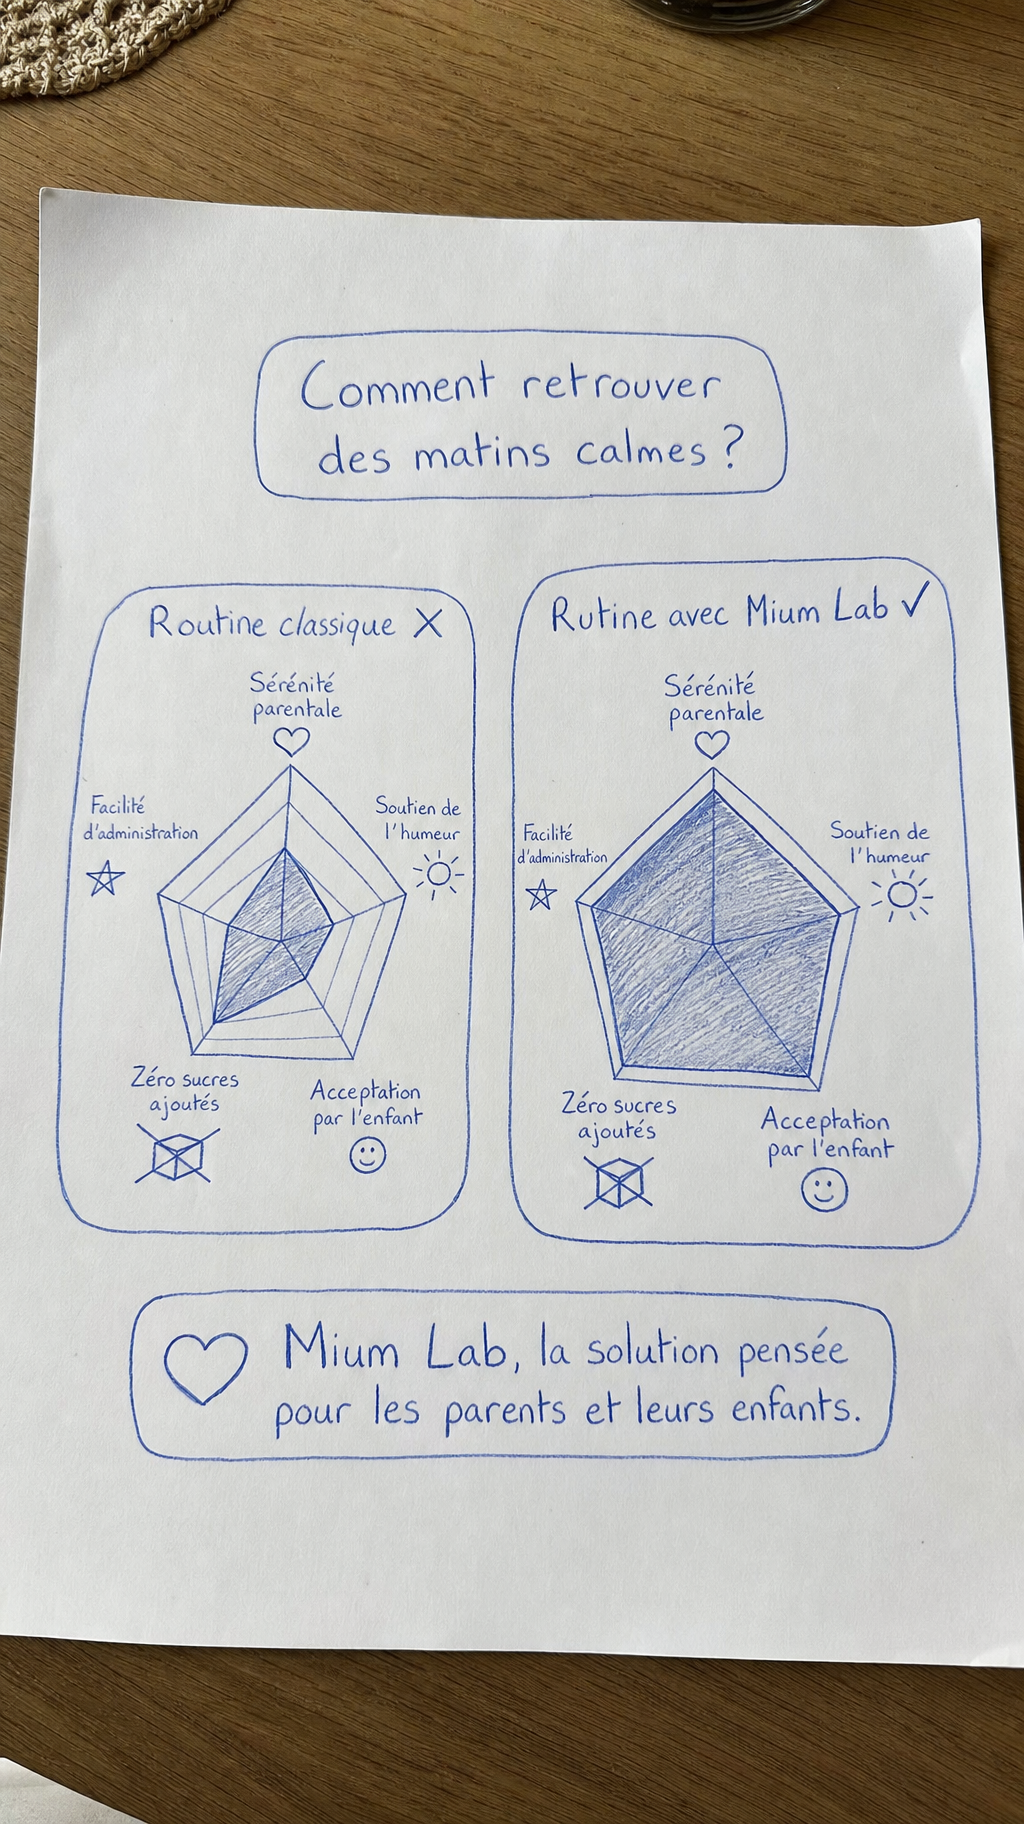 Comment retrouver
des matins calmes ?
Routine classique X
Sérénité
parentale
Facilité
d'administration
Soutien de
l'humeur
Zéro sucres
ajoutés
Acceptation
par l'enfant
Rutine avec Mium Lab ✓
Sérénité
parentale
Facilité
d'administration
Soutien de
l'humeur
Zéro sucres
ajoutés
Acceptation
par l'enfant
Mium Lab, la solution pensée
pour les parents et leurs enfants.